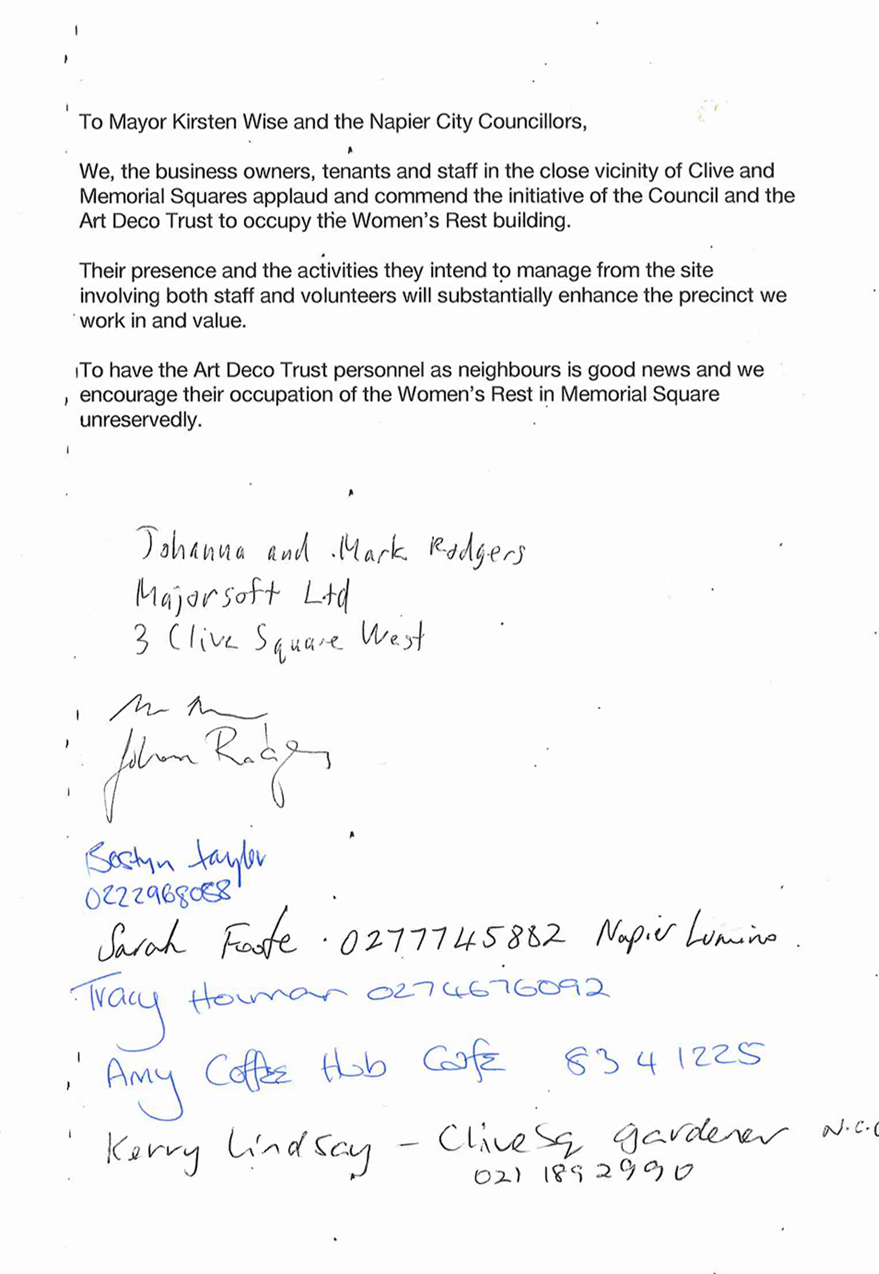 To Mayor Kirsten Wise and the Napier City Councillors,
We, the business owners, tenants and staff in the close vicinity of Clive and
Memorial Squares applaud and commend the initiative of the Council and the
Art Deco Trust to occupy the Women's Rest building.
Their presence and the activities they intend to manage from the site
involving both staff and volunteers will substantially enhance the precinct we
work in and value.
To have the Art Deco Trust personnel as neighbours is good news and we
encourage their occupation of the Women's Rest in Memorial Square
unreservedly.
Johanna and Mark Rodgers
Majorsoft Ltd
3 Clive Square West
Taylor
Sarah Foote . 0277745882 Napier Lumino .
Tracy 0274676092
Amy Coffee Hub Cafe 8341225
Kerry Lindsay - Clive Sq gardener